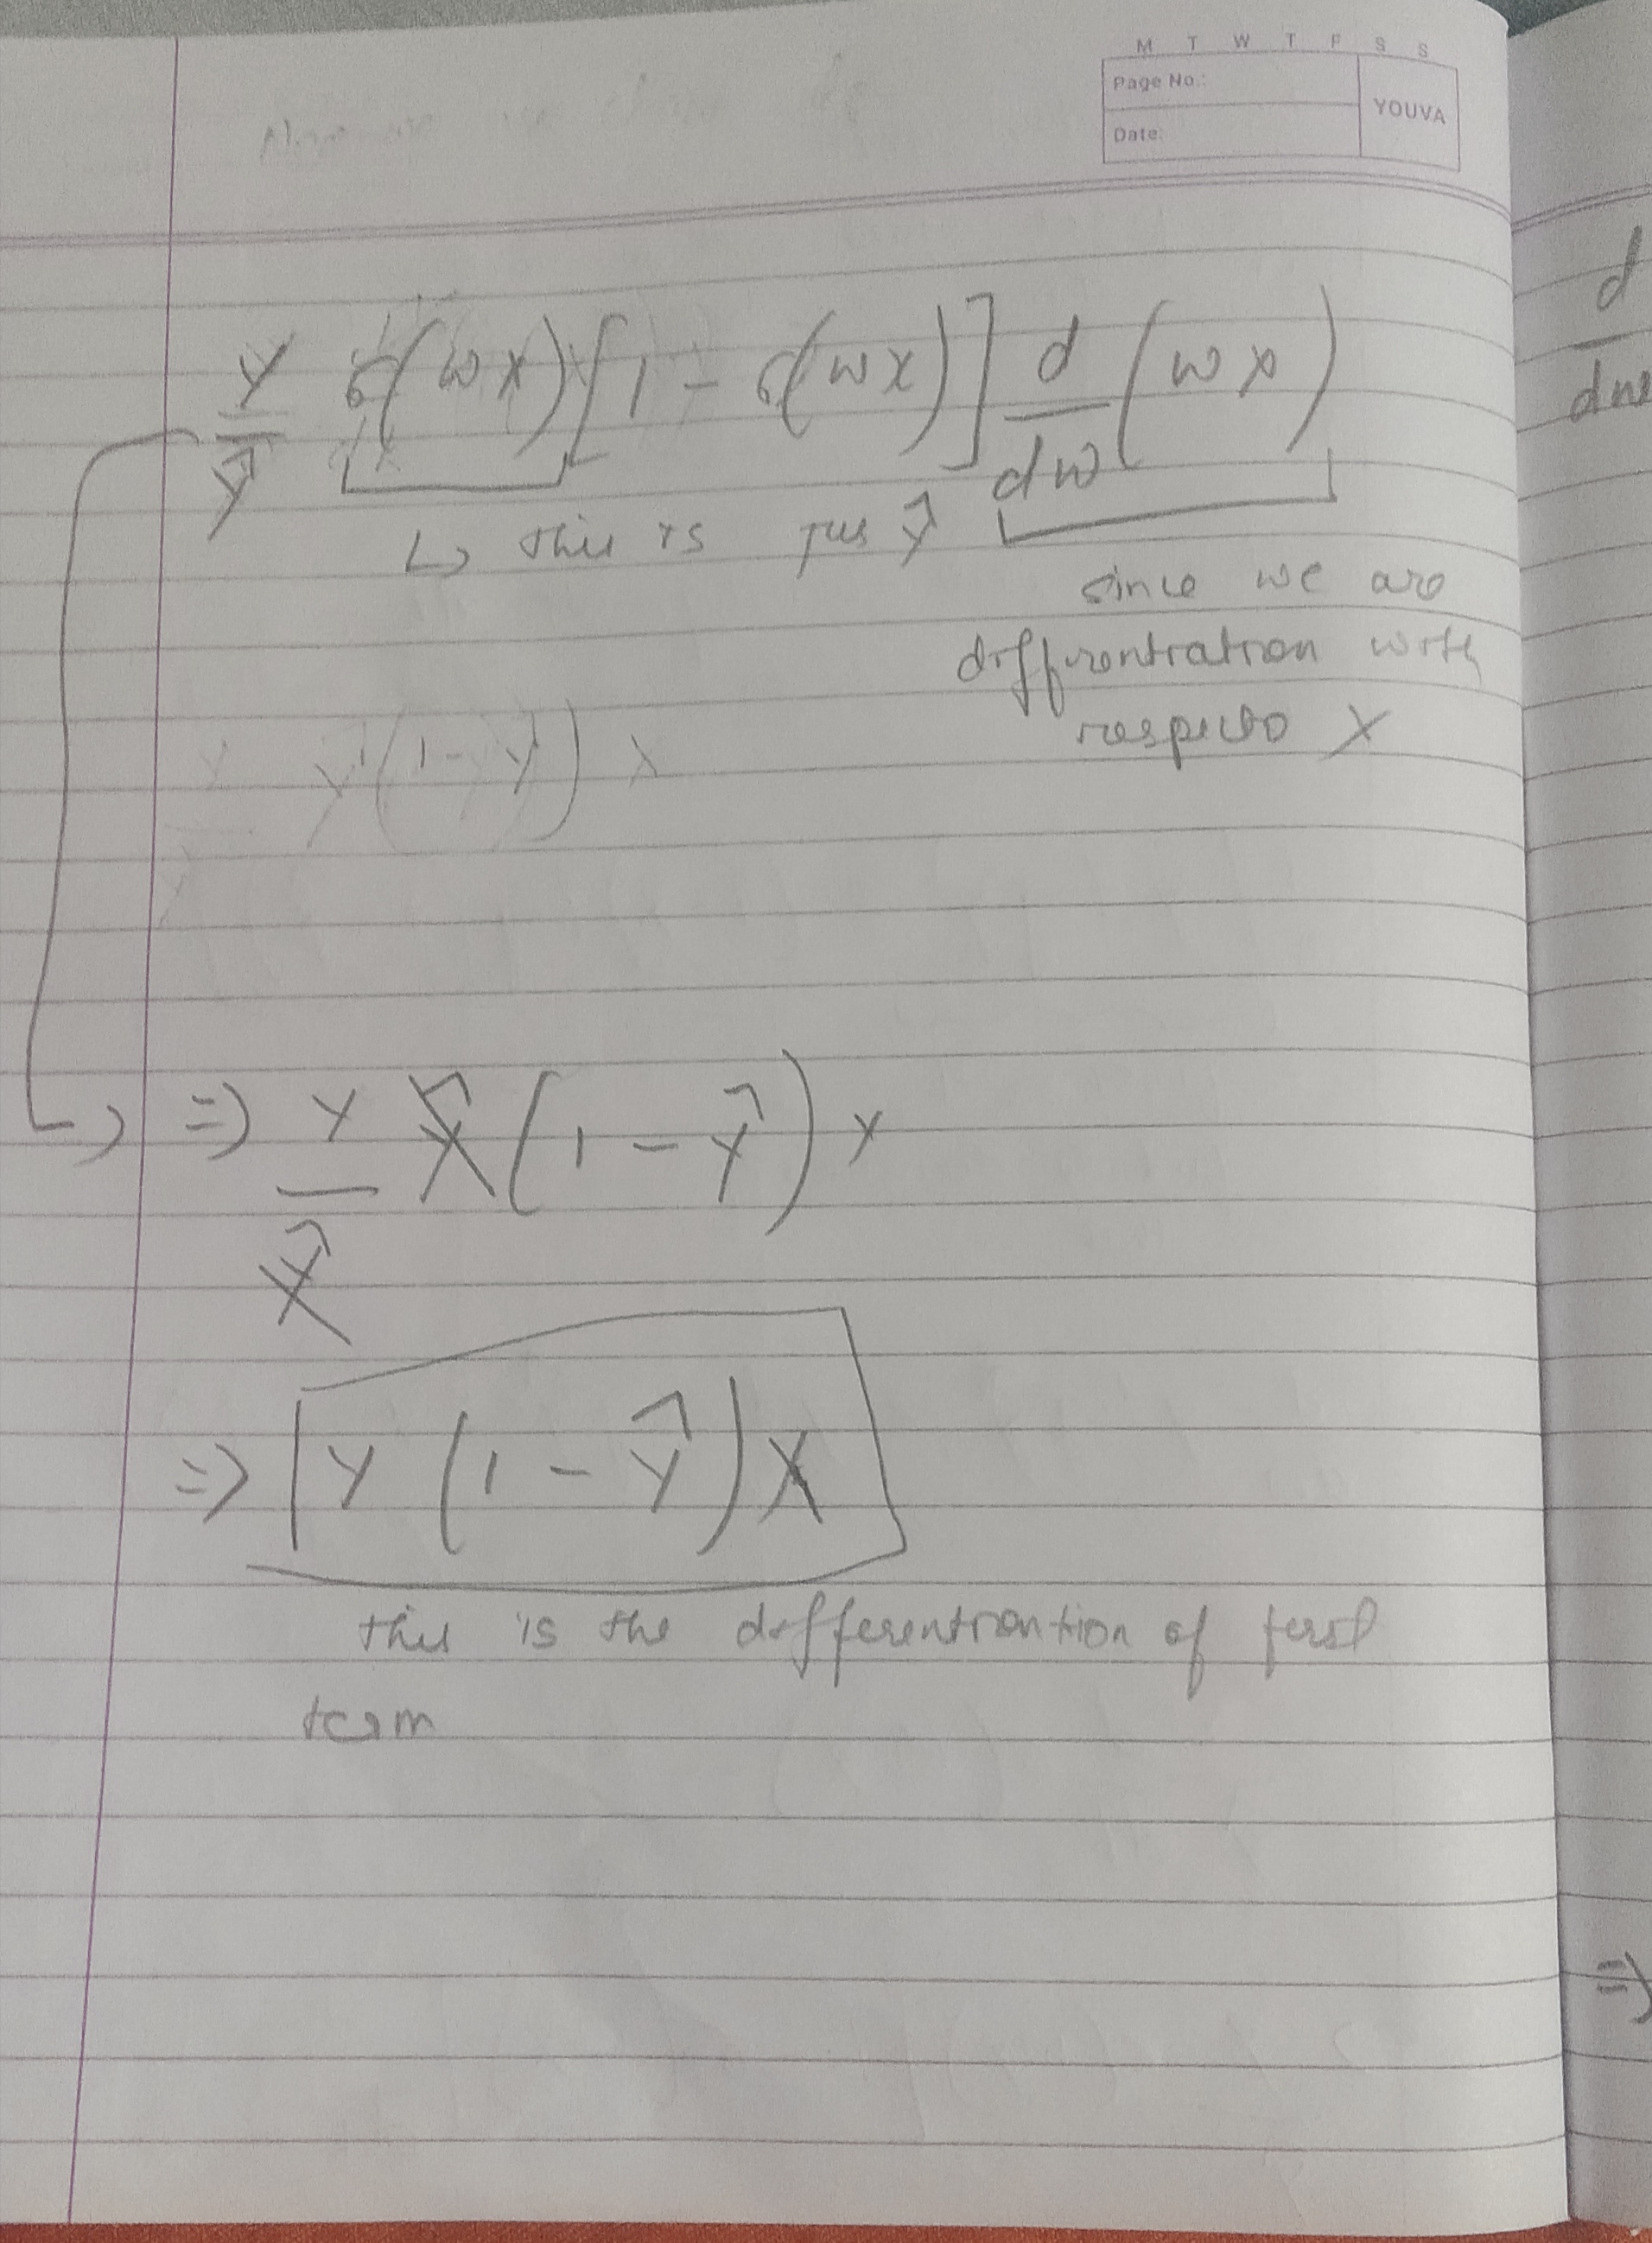 M T W T F S S
Page No.:
YOUVA
Date:
y/ŷ σ(wx)[1 - σ(wx)] d/dw (wx)
↳ this is jus ŷ
since we are
differentiation with
respecto X
ŷ(1-ŷ) x
=> y/ŷ ŷ(1-ŷ)x
=> y(1-ŷ)X
this is the differentiontion of first
term
d
dw
=>